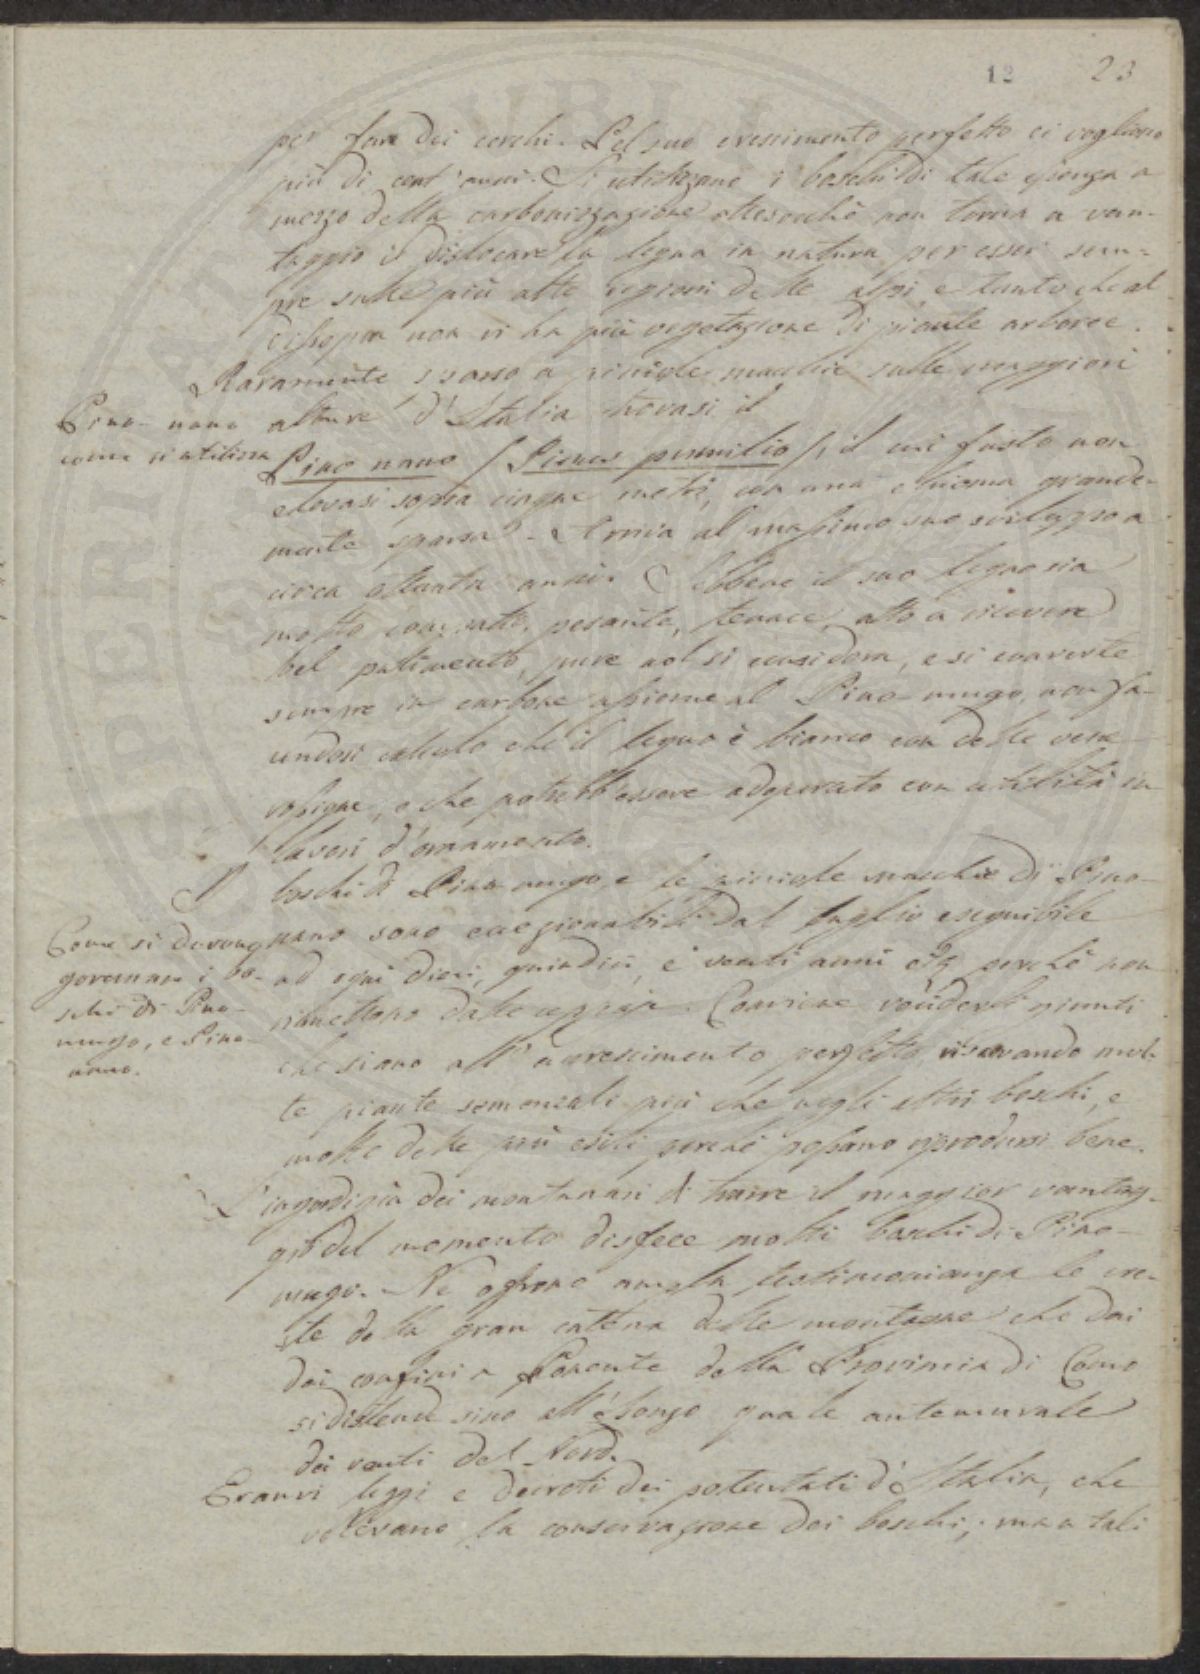 12 23
per fare dei cerchi. Pel suo crescimento perfetto ci vogliono
più di cent'anni. Si utilizzano i boschi di tale essenza a
mezzo della carbonizzazione attesocchè non torna a van-
taggio il dislocare la legna in natura per esser sem-
pre sulle più alte regioni delle alpi, e tanto che al
dissopra non vi ha più vegetazione di piante arboree.
Raramente, sparso a piccole macchie sulle maggiori
alture d'Italia trovasi il
Pino-nano
come si utilizza
Pino nano (Pinus pumilio), il cui fusto non
elevasi sopra cinque metri, con una chioma grande-
mente sparsa. Arriva al massimo suo sviluppo a
circa ottanta anni. Sebbene il suo legno sia
molto compatto, pesante, tenace, atto a ricevere
bel pulimento, pure nol si considera, e si converte
sempre in carbone assieme al Pino-mugo, non fa-
cendosi calcolo che il legno è bianco con delle vene
rossigne, e che potrebb'essere adoperato con utilità in
lavori d'ornamento.
I boschi di Pino-mugo, e le piccole macchie di Pino-
nano sono eccezionabili dal taglio eseguibile
ad ogni dieci, quindici, e venti anni perchè non
rimettono dalle ceppaje. Conviene reciderli giunti
che siano all'accrescimento perfetto, riservando mol-
te piante semenzali più che negli altri boschi, e
molte delle più esili perchè possano riprodursi bene.
Come si devono
governare i bo-
schi di Pino-
mugo, e Pino-
nano.
L'ingordigia dei montanari di trarre il maggior vantag-
gio del momento disfece molti boschi di Pino-
mugo. Ne offrono ampla testimonianza le cre-
ste della gran cattena delle montagne che dai
dai confini a Ponente della Provincia di Como
si distende sino all'Isonzo quale antemurale
dei venti del Nord.
Eranvi leggi e decreti dei potentati d'Italia, che
volevano la conservazione dei boschi; ma a tali